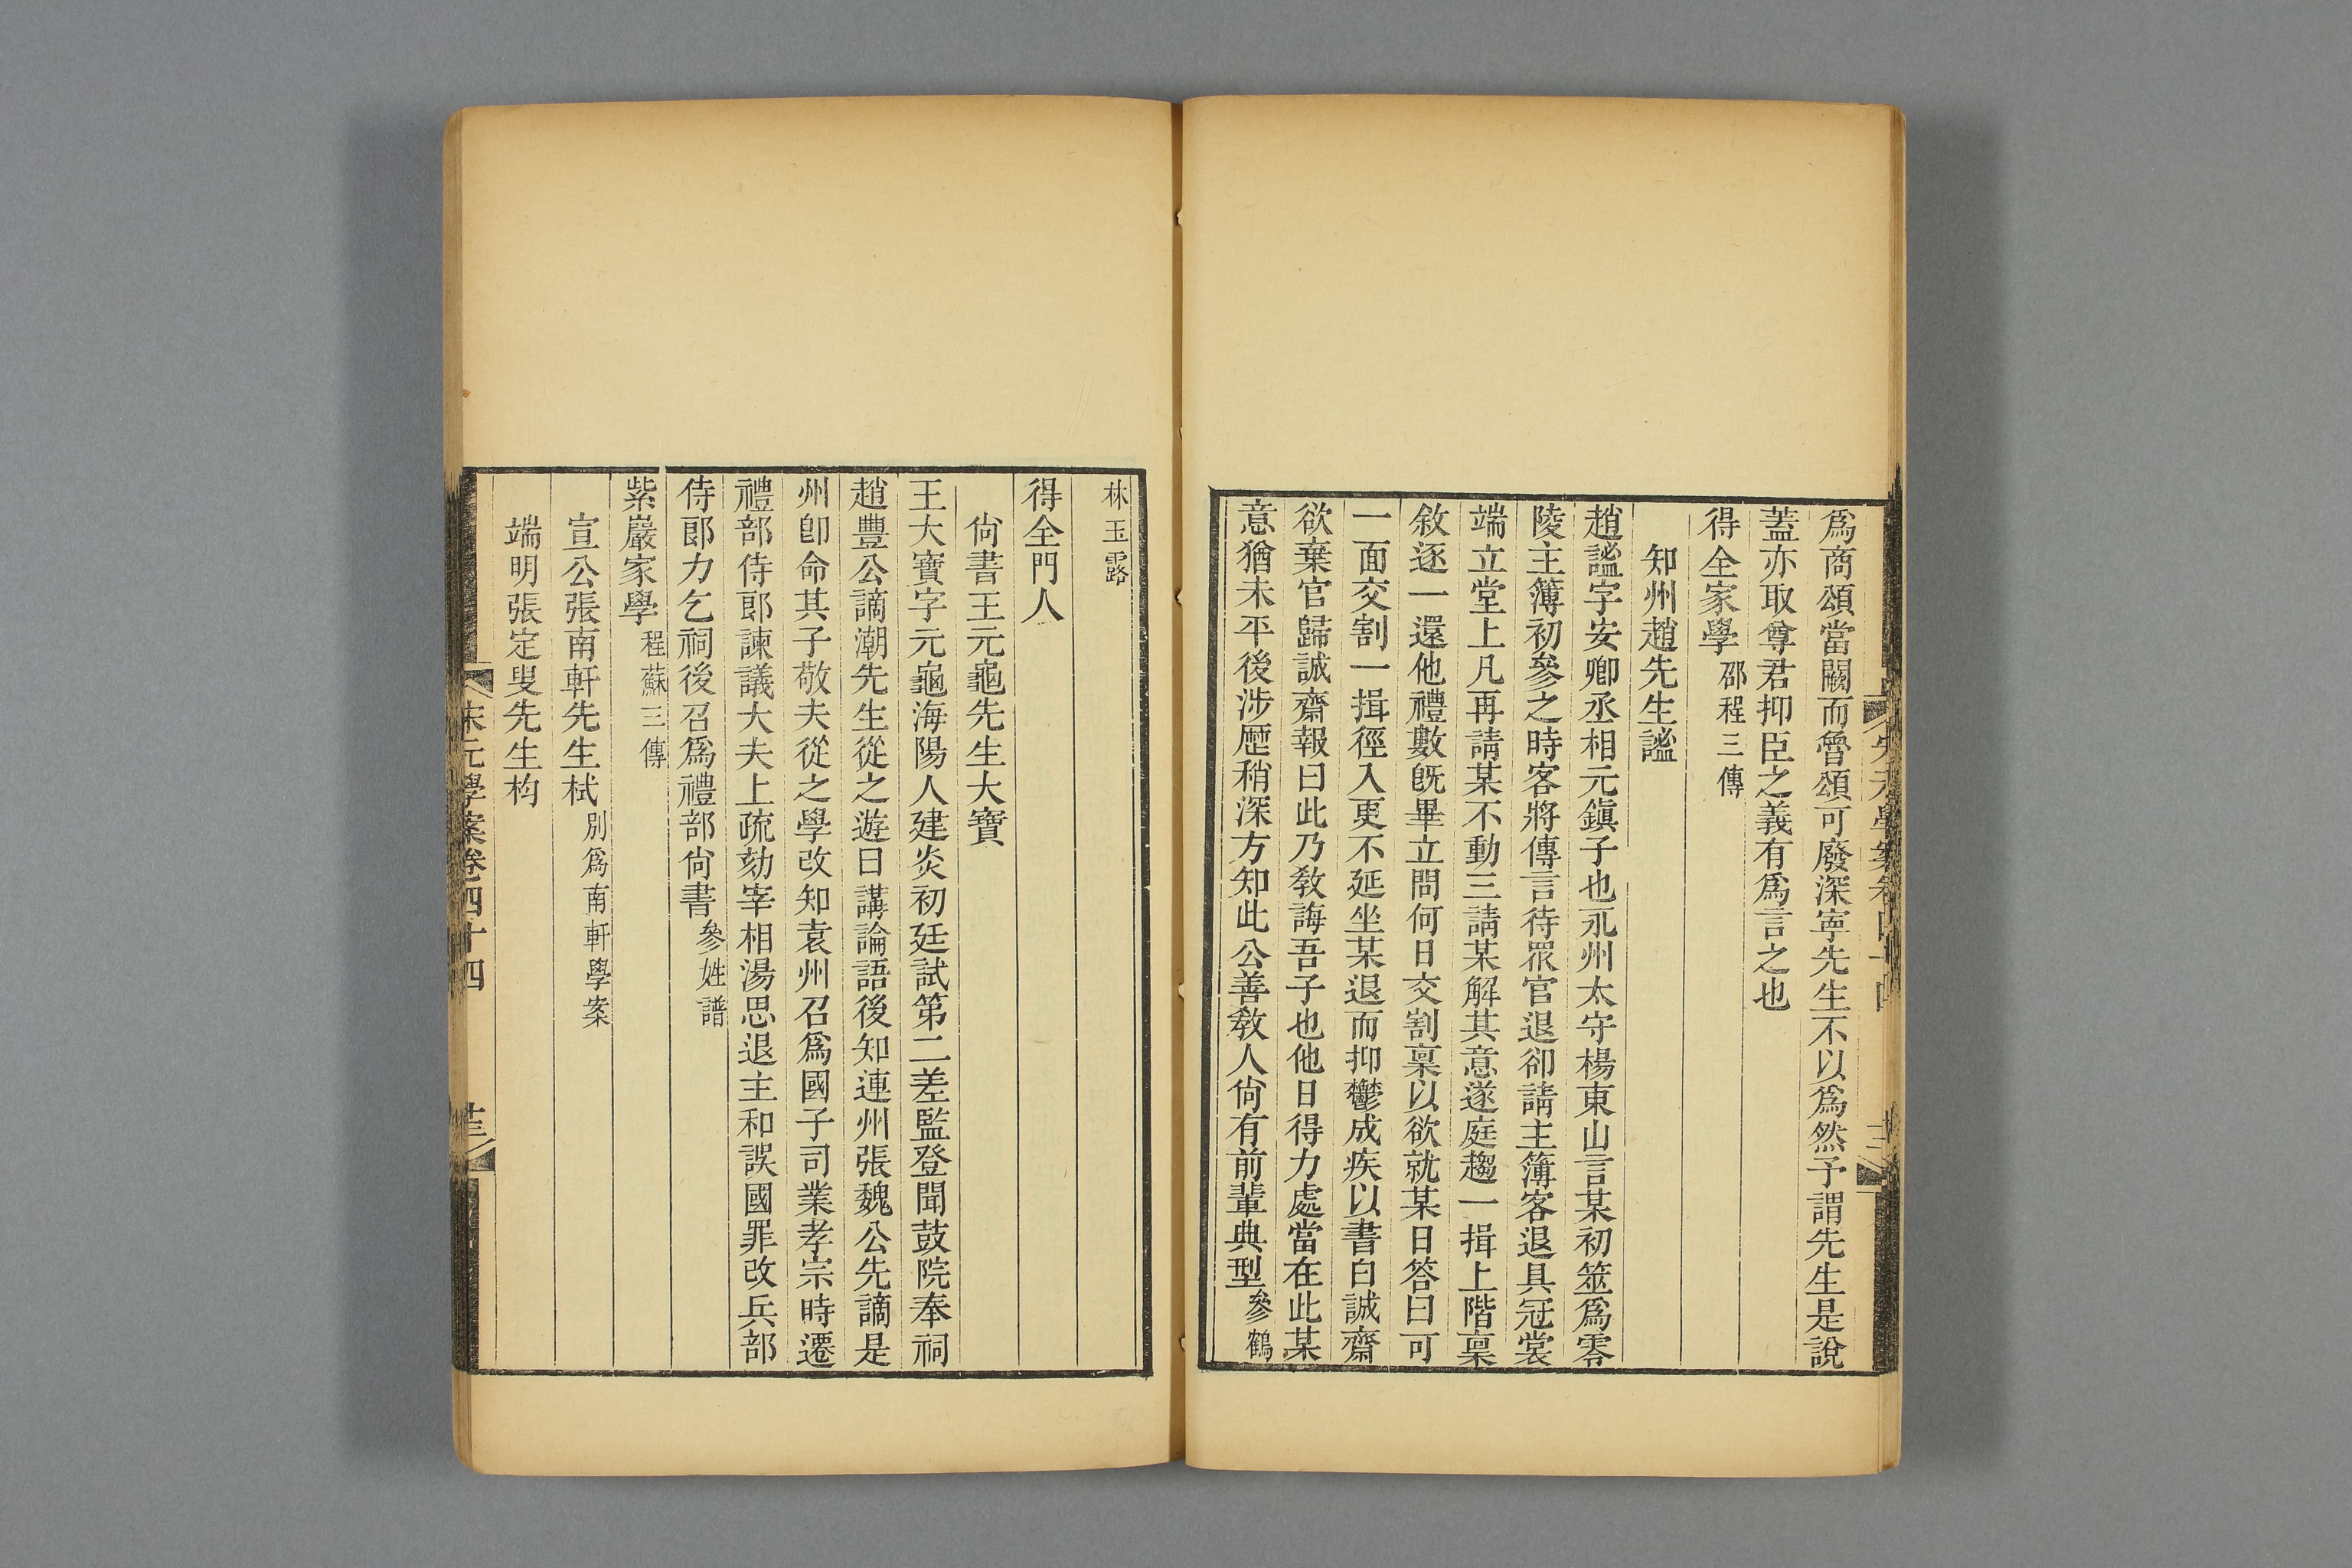 爲商頌當闕而魯頌可廢深寧先生不以爲然予謂先生是說
蓋亦取尊君抑臣之義有爲言之也
得全家學邵程三傳
知州趙先生謐
趙謐字安卿丞相元鎭子也永州太守楊東山言某初筮爲零
陵主簿初參之時客將傳言待眾官退卻請主簿客退具冠裳
端立堂上凡再請某不動三請某解其意遂庭趨一揖上階稟
敘逐一還他禮數旣畢立問何日交割稟以欲就某日答曰可
一面交割一揖徑入更不延坐某退而抑鬱成疾以書白誠齋
欲棄官歸誠齋報曰此乃敎誨吾子也他日得力處當在此某
意猶未平後涉歷稍深方知此公善敎人尙有前輩典型參鶴
林玉露
得全門人
尙書王元龜先生大寶
王大寶字元龜海陽人建炎初廷試第二差監登聞鼓院奉祠
趙豐公謫潮先生從之遊日講論語後知連州張魏公先謫是
州卽命其子敬夫從之學改知袁州召爲國子司業孝宗時遷
禮部侍郎諫議大夫上疏劾宰相湯思退主和誤國罪改兵部
侍郎力乞祠後召爲禮部尙書參姓譜
紫巖家學程蘇三傳
宣公張南軒先生栻別爲南軒學案
端明張定叟先生枃
宋元學案卷四十四